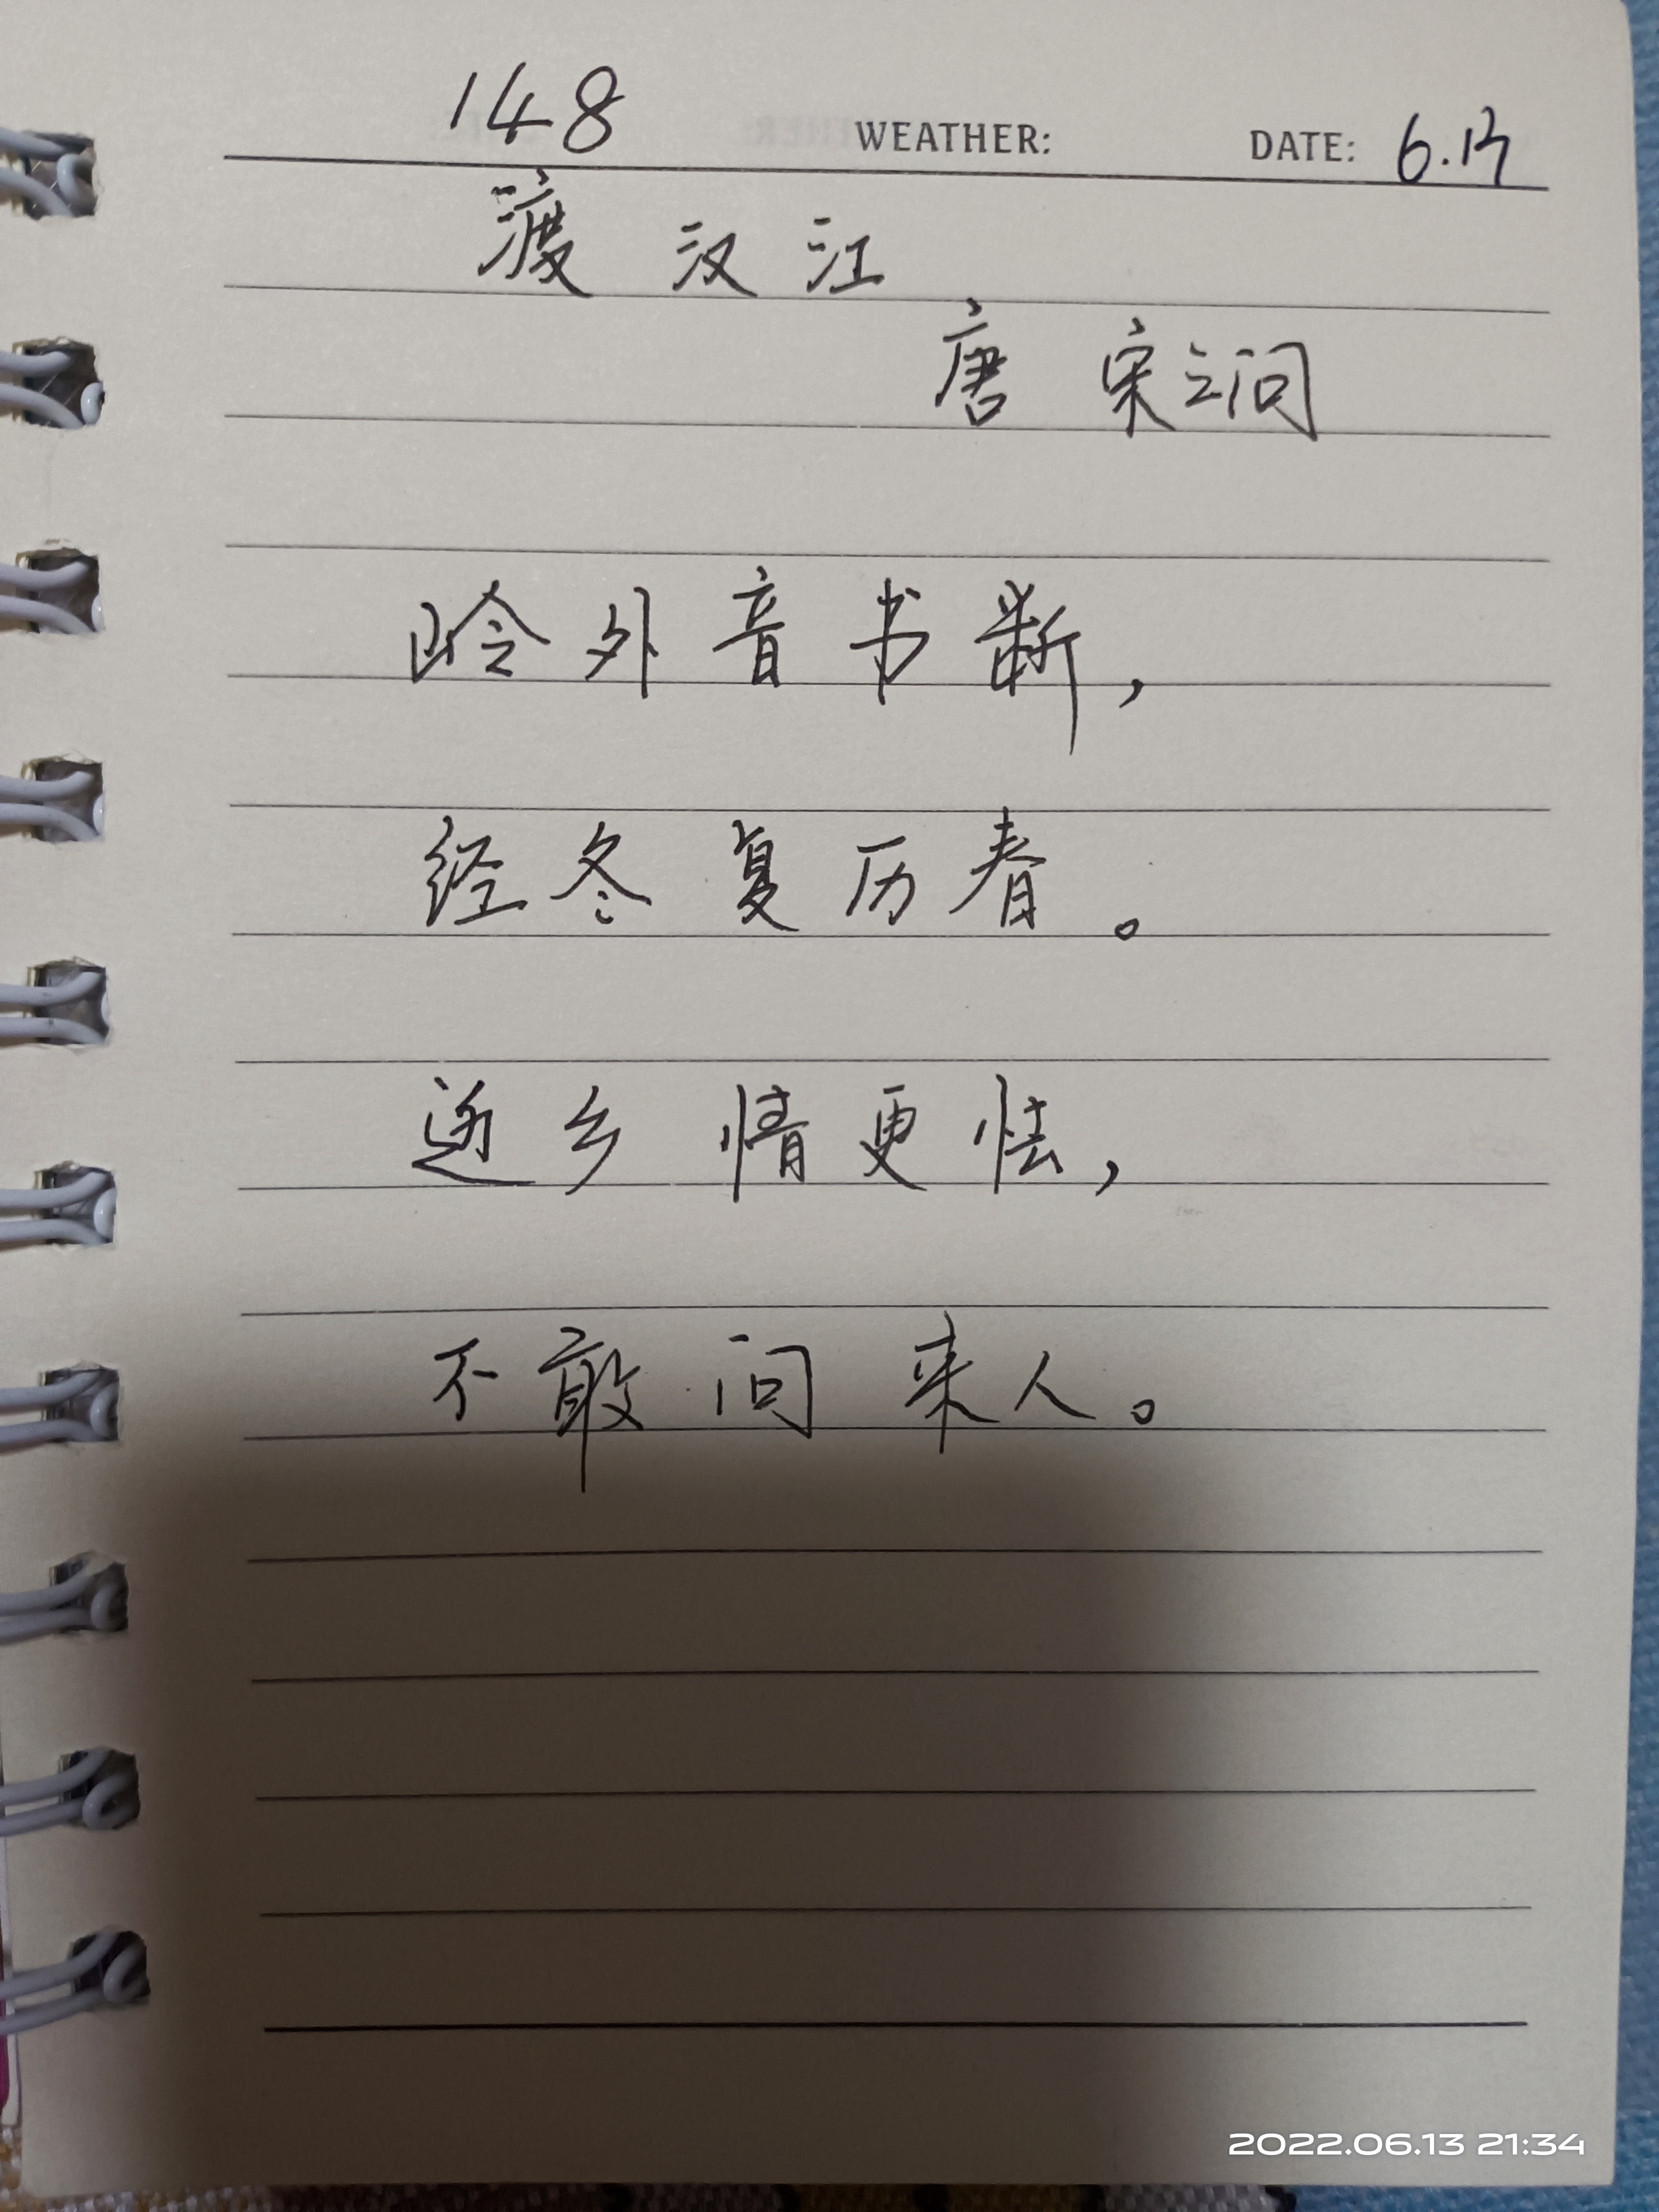 148 WEATHER: DATE: 6.13
渡汉江
唐 宋之问
岭外音书断，
经冬复历春。
近乡情更怯，
不敢问来人。
2022.06.13 21:34